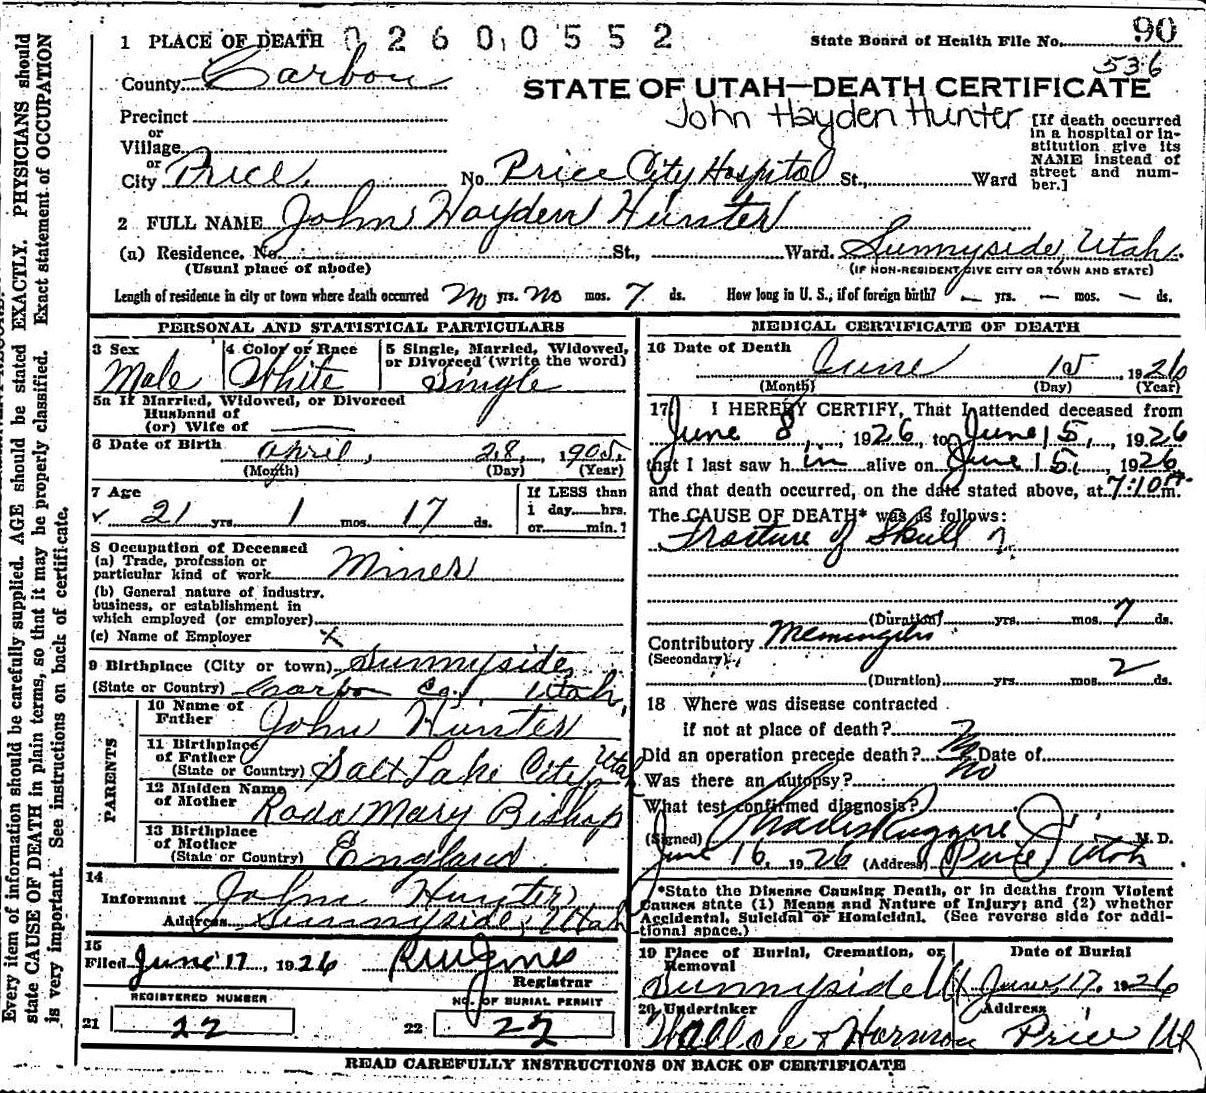 90
0 2 6 0 0 5 5 2
1 PLACE OF DEATH
State Board of Health File No.
536
County Carbon
STATE OF UTAH—DEATH CERTIFICATE
John Hayden Hunter
Precinct
or
Village
or
City Price, No. Price City Hospital St., Ward
[If death occurred in a hospital or institution give its NAME instead of street and number.]
2 FULL NAME John Hayden Hunter
(a) Residence. No. St., Ward. Sunnyside, Utah.
(Usual place of abode) (IF NON-RESIDENT GIVE CITY OR TOWN AND STATE)
Length of residence in city or town where death occurred no yrs. no mos. 7 ds. How long in U. S., if of foreign birth? — yrs. — mos. — ds.
PERSONAL AND STATISTICAL PARTICULARS
3 Sex 4 Color or Race 5 Single, Married, Widowed,
or Divorced (write the word)
Male White Single
5a If Married, Widowed, or Divorced
Husband of
(or) Wife of
6 Date of Birth April, 28, 1905.
(Month) (Day) (Year)
7 Age If LESS than
21 yrs. 1 mos. 17 ds. 1 day hrs.
or min.?
8 Occupation of Deceased
(a) Trade, profession or
particular kind of work Miner
(b) General nature of industry,
business, or establishment in
which employed (or employer)
(c) Name of Employer x
9 Birthplace (City or town) Sunnyside,
(State or Country) Carbon Co., Utah,
PARENTS
10 Name of
Father John Hunter
11 Birthplace
of Father
(State or Country) Salt Lake City, Utah
12 Maiden Name
of Mother Roda Mary Bishop
13 Birthplace
of Mother
(State or Country) England
14
Informant John Hunter
Address Sunnyside, Utah
15
Filed June 17, 1926 RW Jones
Registrar
REGISTERED NUMBER NO. OF BURIAL PERMIT
21 22 22 22
MEDICAL CERTIFICATE OF DEATH
16 Date of Death June 15, 1926
(Month) (Day) (Year)
17 I HEREBY CERTIFY, That I attended deceased from
June 8, 1926, to June 15, 1926
that I last saw him alive on June 15, 1926
and that death occurred, on the date stated above, at 7:10 P.m.
The CAUSE OF DEATH* was as follows:
Fracture of Skull
(Duration) yrs. mos. 7 ds.
Contributory Memingitis
(Secondary)
(Duration) yrs. mos. 2 ds.
18 Where was disease contracted
if not at place of death?
Did an operation precede death? No Date of
Was there an autopsy? No
What test confirmed diagnosis?
(Signed) Charles Ruggeri Jr. M. D.
June 16, 1926 (Address) Price, Utah
*State the Disease Causing Death, or in deaths from Violent
Causes state (1) Means and Nature of Injury; and (2) whether
Accidental, Suicidal or Homicidal. (See reverse side for addi-
tional space.)
19 Place of Burial, Cremation, or Removal Date of Burial
Sunnyside Ut June, 17, 1926
20 Undertaker Address
Wallace & Harmon Price Ut
READ CAREFULLY INSTRUCTIONS ON BACK OF CERTIFICATE
Every item of information should be carefully supplied. AGE should be stated EXACTLY. PHYSICIANS should
state CAUSE OF DEATH in plain terms, so that it may be properly classified. Exact statement of OCCUPATION
is very important. See instructions on back of certificate.